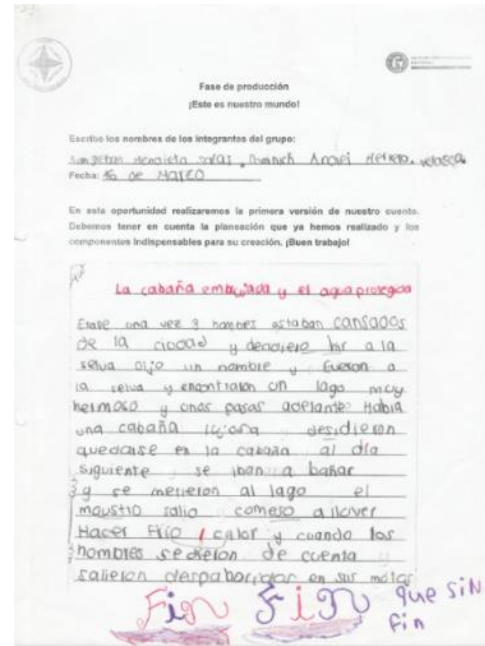 Fase de producción
¡Este es nuestro mundo!
Escribe los nombres de los integrantes del grupo:
Fecha: 16 de Marzo
En esta oportunidad realizaremos la primera versión de nuestro cuento.
Debemos tener en cuenta la planeación que ya hemos realizado y los
componentes indispensables para su creación. ¡Buen trabajo!
La cabaña embrujada y el agua protegida
Erase una vez 3 hombes estaban cansados
de la ciudad y deciciero hir a la
selva dijo un hombre y fueron a
la selva y encontraron un lago muy
hermoso y unos pasos adelante Había
una cabaña lujosa desidieron
quedarse en la cabaña al día
siguiente se iban a bañar
y se metieron al lago el
moustrio salio comeso a llover
Hacer Frio calor y cuando los
hombres se dieron de cuenta
salieron en sus motos
Fin Fin que sin
fin